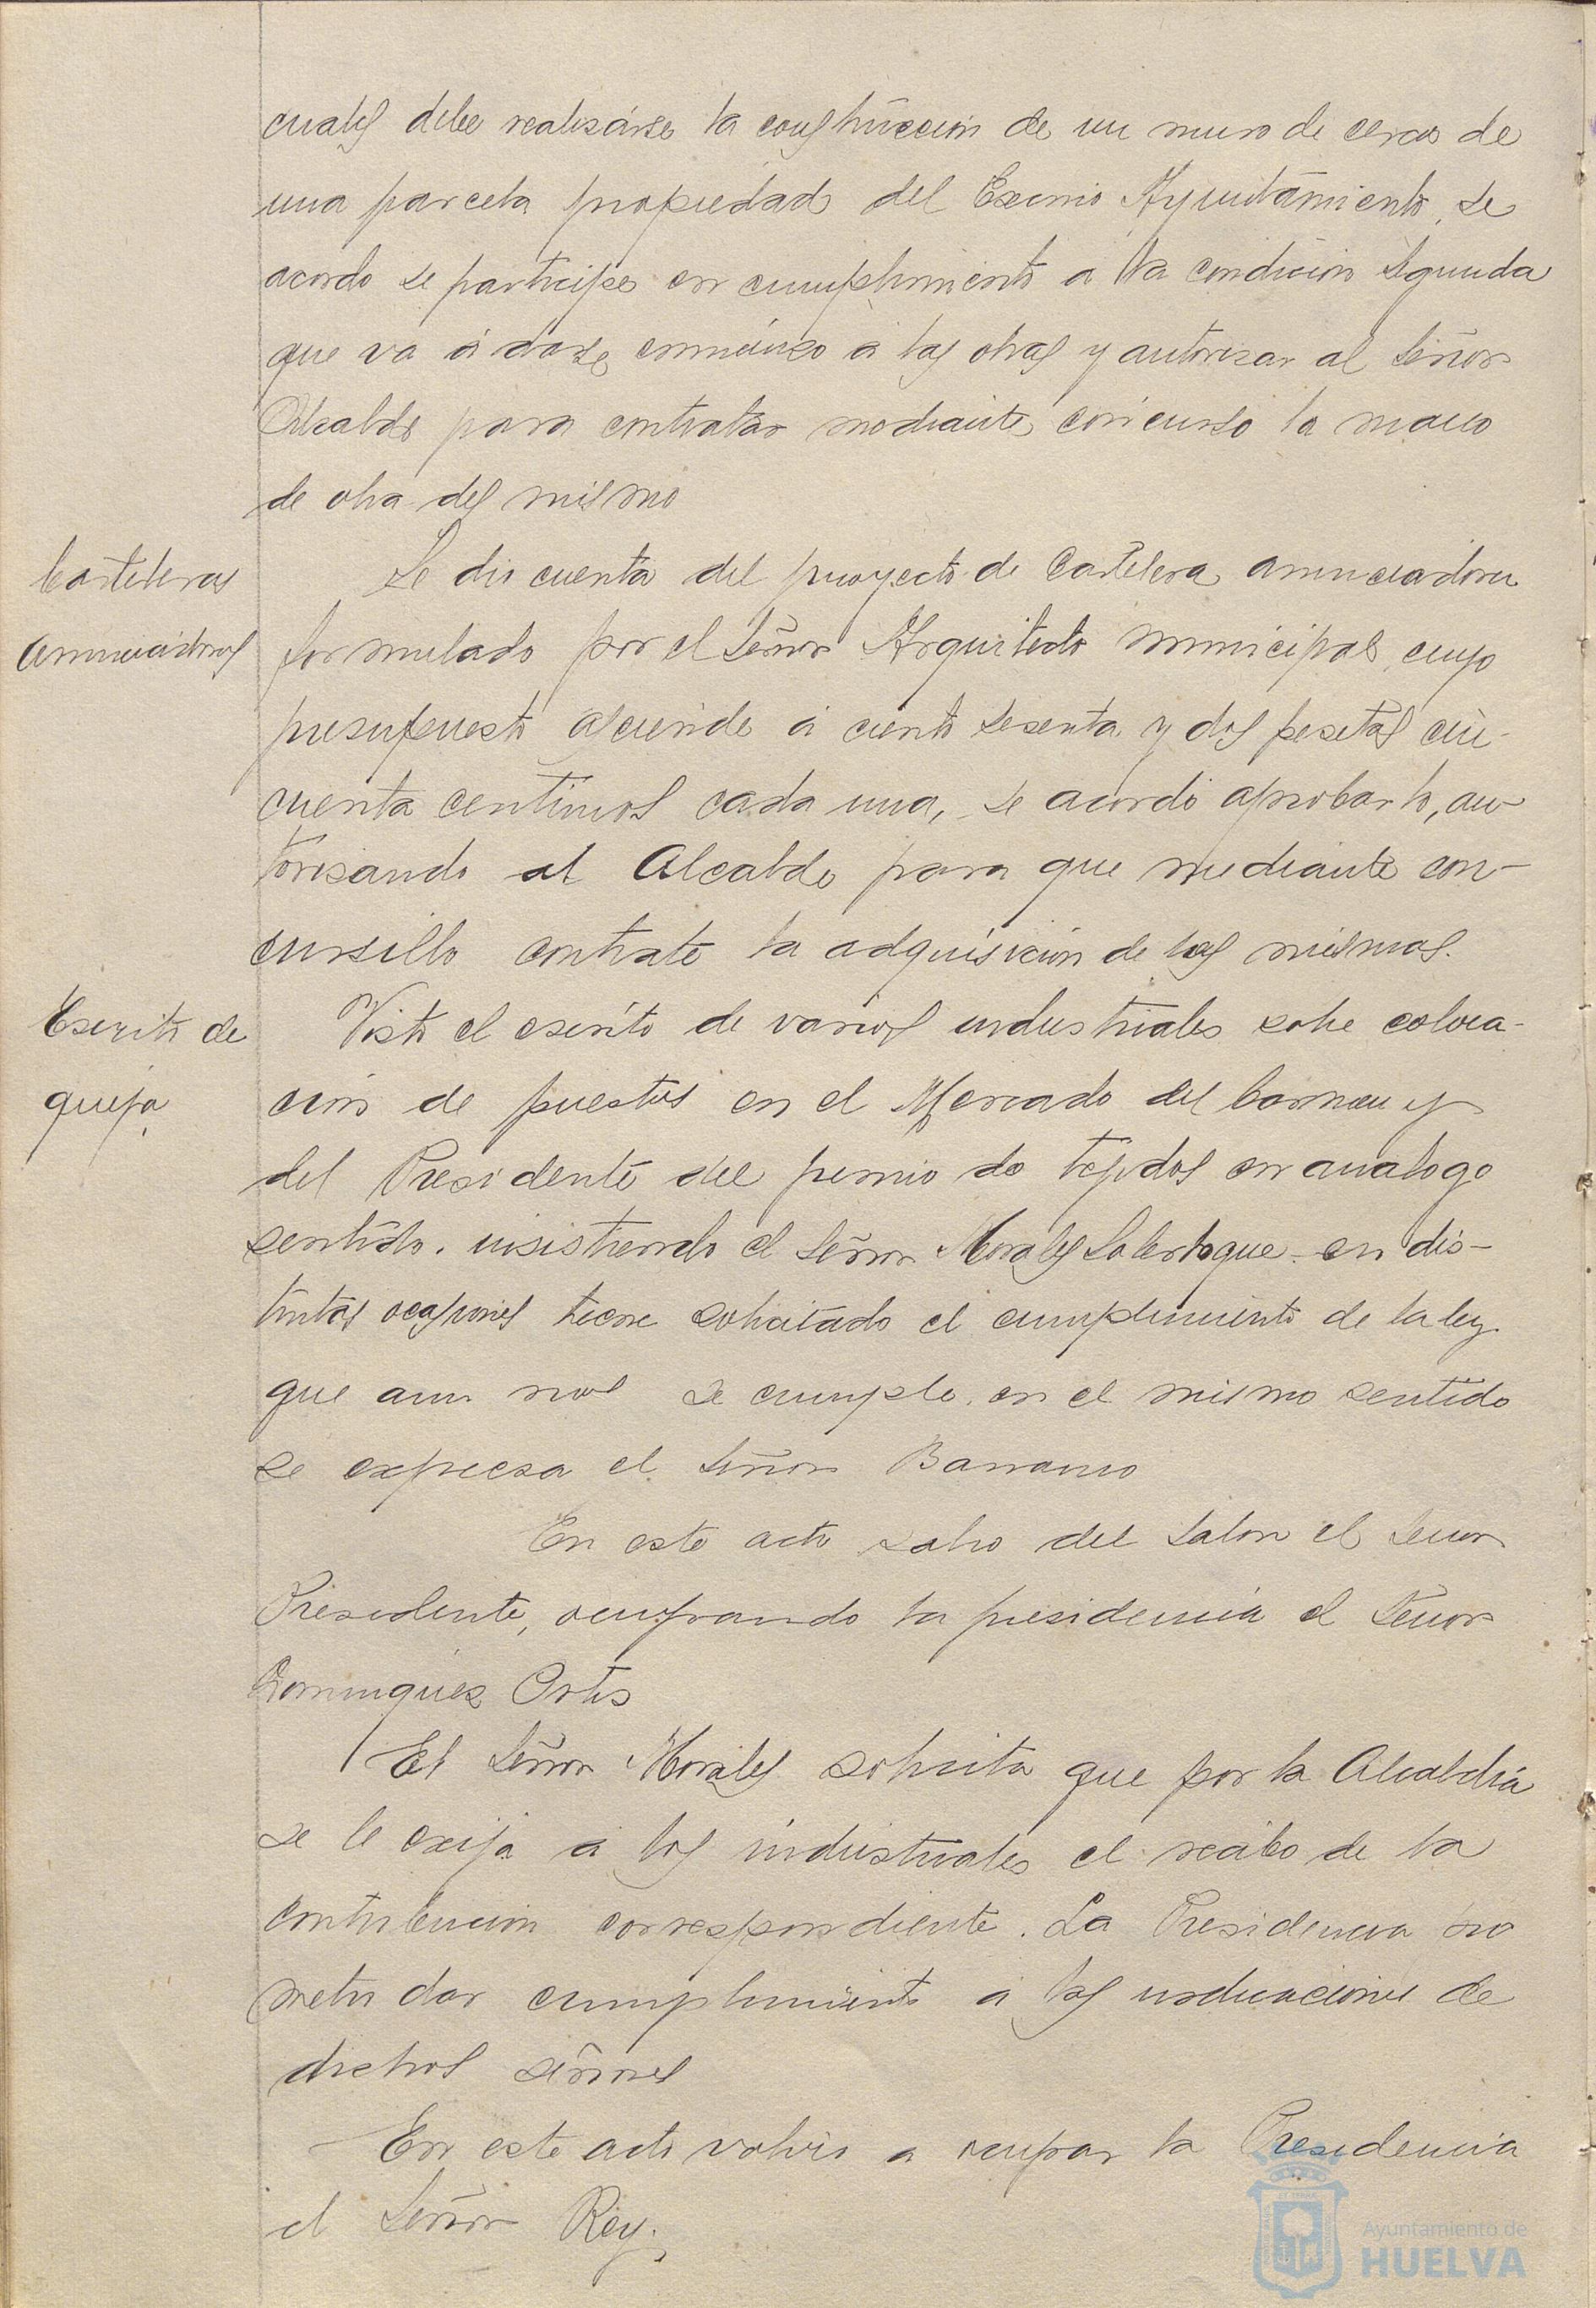 cuales debe realizarse la construccion de un muro de cerca de
una parcela propiedad del Excmo Ayuntamiento, se
acordo se participe en cumplimiento a la condicion segunda
que va á darse comienzo á las obras y autorizar al Señor
Alcalde para contratar mediante concurso la mano
de obra del mismo
Carteleras
anunciadoras
Se dio cuenta del proyecto de Cartelera anunciadora
formulado por el Señor Arquitecto municipal, cuyo
presupuesto asciende á ciento sesenta y dos pesetas cin-
cuenta centimos cada una, se acordó aprobarlo, au-
torizando al Alcalde para que mediante con-
cursillo contrate la adquisicion de las mismas.
Escrito de
queja
Visto el escrito de varios industriales sobre coloca-
cion de puestos en el Mercado del Carmen y
del Presidente del gremio de tejidos en analogo
sentido. insistiendo el Señor Morales que en dis-
tintas ocasiones tiene solicitado el cumplimiento de la ley
que aun no se cumple. en el mismo sentido
se expresa el Señor Barranco
En este acto salio del Salon el Señor
Presidente, ocupando la presidencia el Señor
Dominguez Ortis
El Señor Morales solicita que por la Alcaldia
se le exija a los industriales el recibo de la
contribucion correspondiente. La Presidencia pro
metio dar cumplimiento a las indicaciones de
dichos señores
En este acto volvio a ocupar la Presidencia
el Señor Rey.
Ayuntamiento de
HUELVA